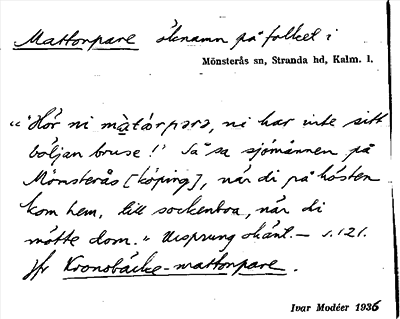 Mattonpare öknamn på folket i
Mönsterås sn, Stranda hd, Kalm. l.
"Hör ni màtórpərə, ni har inte sitt
böljan bruse!" Så sa sjömännen på
Mönsterås [köping], när di på hösten
kom hem, till sockenboa, när di
mötte dom." Ursprung okänt. — s. 121.
Jfr Kronobäcks-mattonpare.
Ivar Modéer 1936